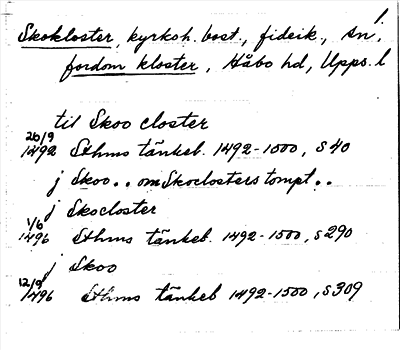 Skokloster, kyrksh. bost., fideik., Sn;
fordom kloster, Håbo hd, Upps. l
til Skoo closter
26/9
1492 Sthms tänkeb. 1492-1500, s 40
j Skoo . . om Skoclosters tompt . .
j Skocloster
1/6
1496 Sthms tänkeb. 1492-1500, s 290
j Skoo
12/9
1496 Sthms tänkeb 1492-1500, s 309